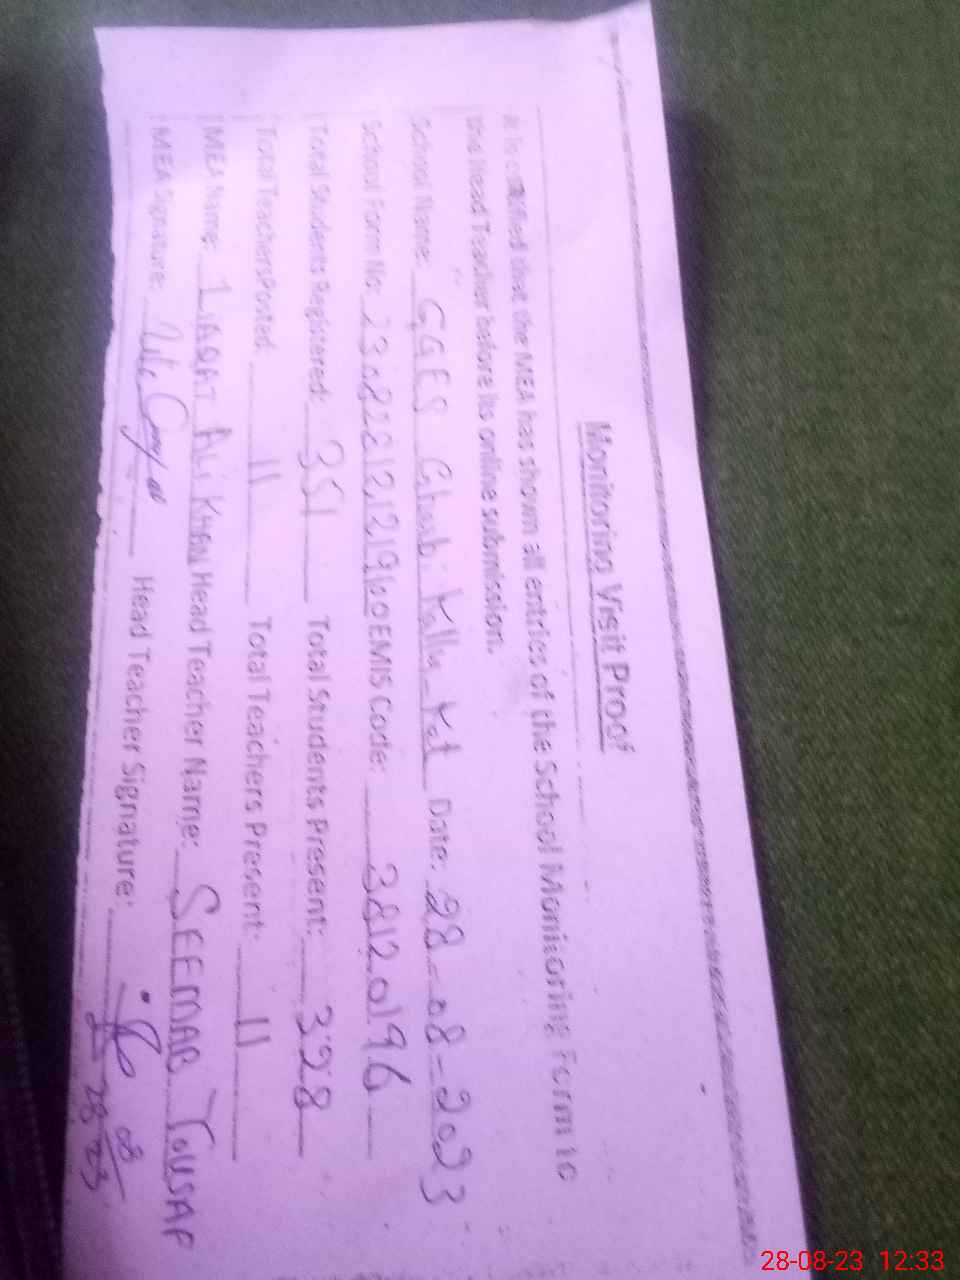 Monitoring Visit Proof
It is certified that the MEA has shown all entries of the School Monitoring Form to
the Head Teacher before its online submission.
School Name: GGES Date: 28-08-2023
School Form No: EMIS Code: 38120196
Total Students Registered: 351 Total Students Present: 328
Total Teachers Posted: 11 Total Teachers Present: 11
MEA Name: LIAQAT ALI KHAN Head Teacher Name: SEEMAB YOUSAF
MEA Signature: Head Teacher Signature:
28 08 23
28-08-23 12:33